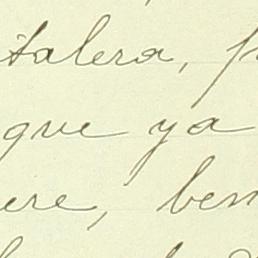 talera,
que ya
ere, ben